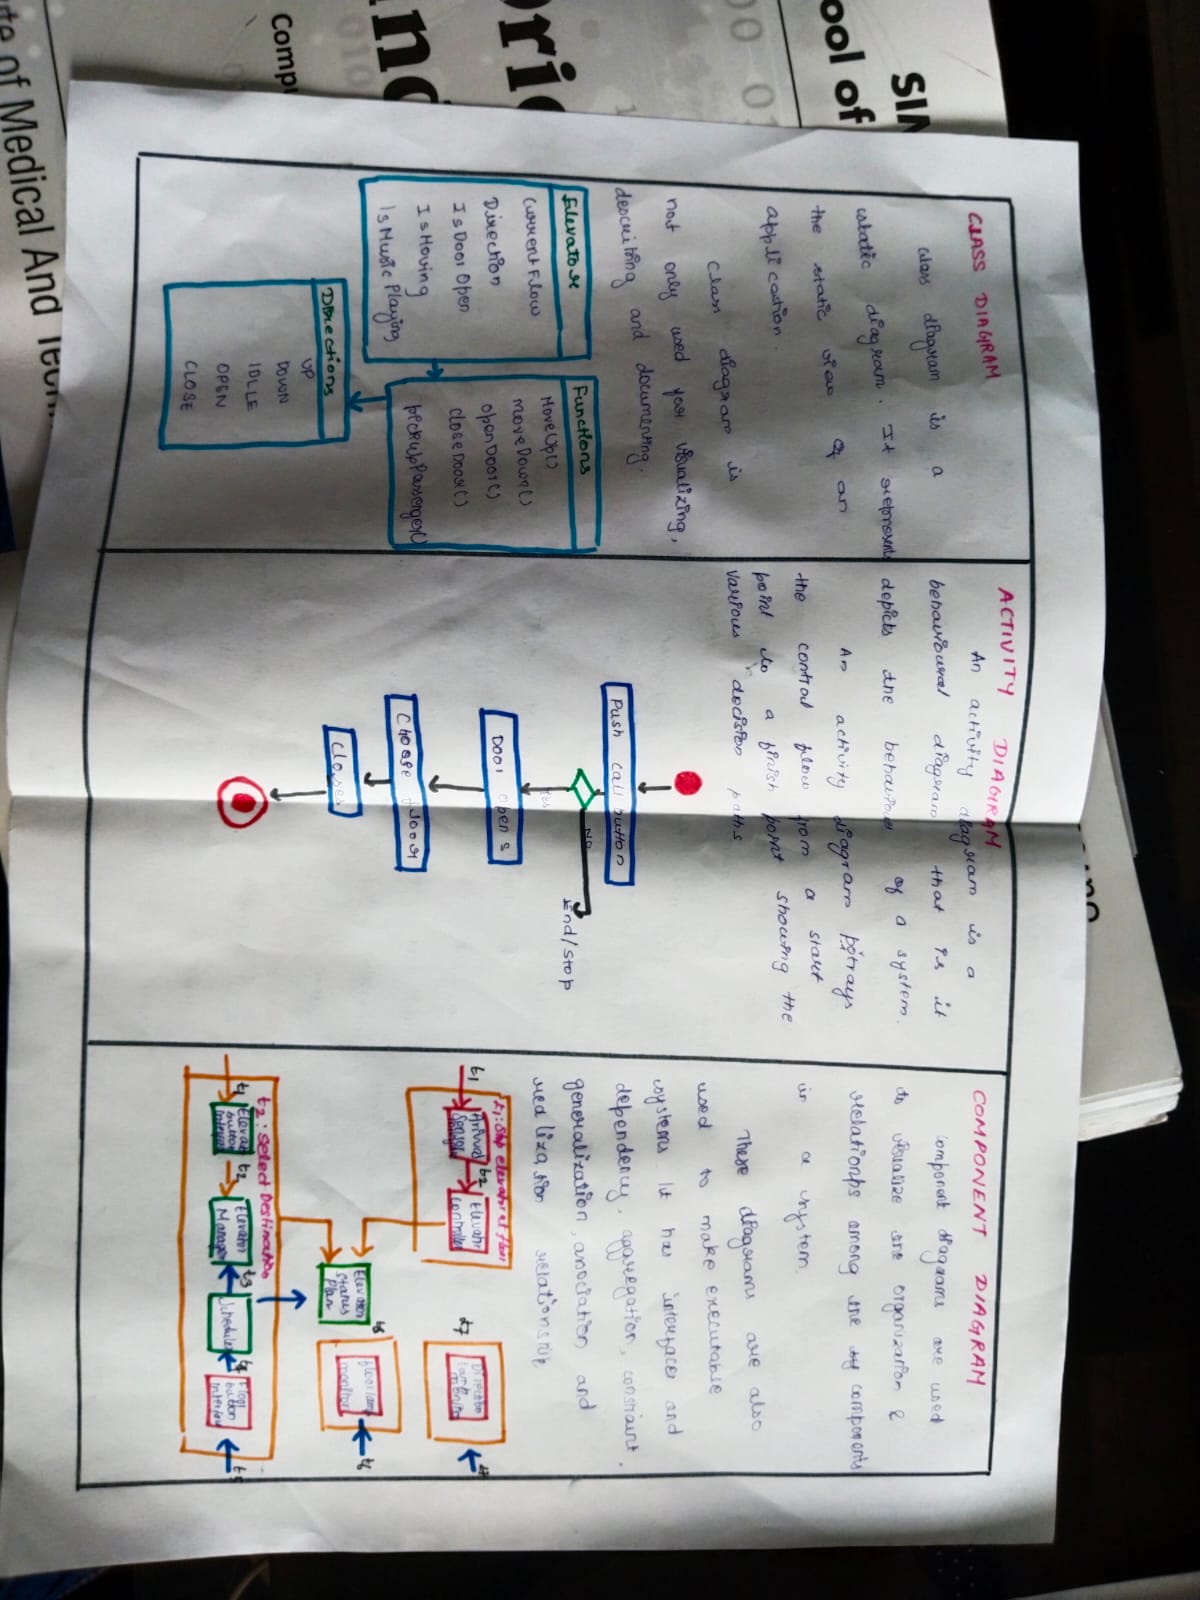 SIM
ool of
00 01
1
Orie
nd
010
Compu
te of Medical And Tech
CLASS DIAGRAM
class diagram is a
static diagram. It represents
the static view of an
application.
Class diagram is
not only used for visualizing,
describing and documenting.
Elevator
CurrentFlow
Direction
IsDoorOpen
IsMoving
IsMusicPlaying
Functions
MoveUp()
moveDown()
openDoor()
closeDoor()
pickupPassenger()
Directions
UP
DOWN
IDLLE
OPEN
CLOSE
ACTIVITY DIAGRAM
An activity diagram is a
behavioural diagram that is it
depicts the behaviour of a system.
An activity diagram potrays
the control flow from a start
point to a finish point showing the
various decision paths
Push call button
NO
End/Stop
Yes
Door opens
Choose floor
Closes
COMPONENT DIAGRAM
Component diagrams are used
to visualize the organization &
relationps among the components
in a system.
These diagrams are also
used to make executable
systems. It has interfaces and
dependency, aggregation, constraint,
generalization, association and
realization relationship
t1: Stop elevator at floor
t1
Arrival Sensor
t2
Elevator Controller
t7
Direction lamp monitor
Elevator Status Plan
t8
floor lamp monitor
t6
t2: Select Destination
t1
Elevator button Interface
t2
Elevator Manager
t3
Scheduler
t4
Floor button Interface
t5